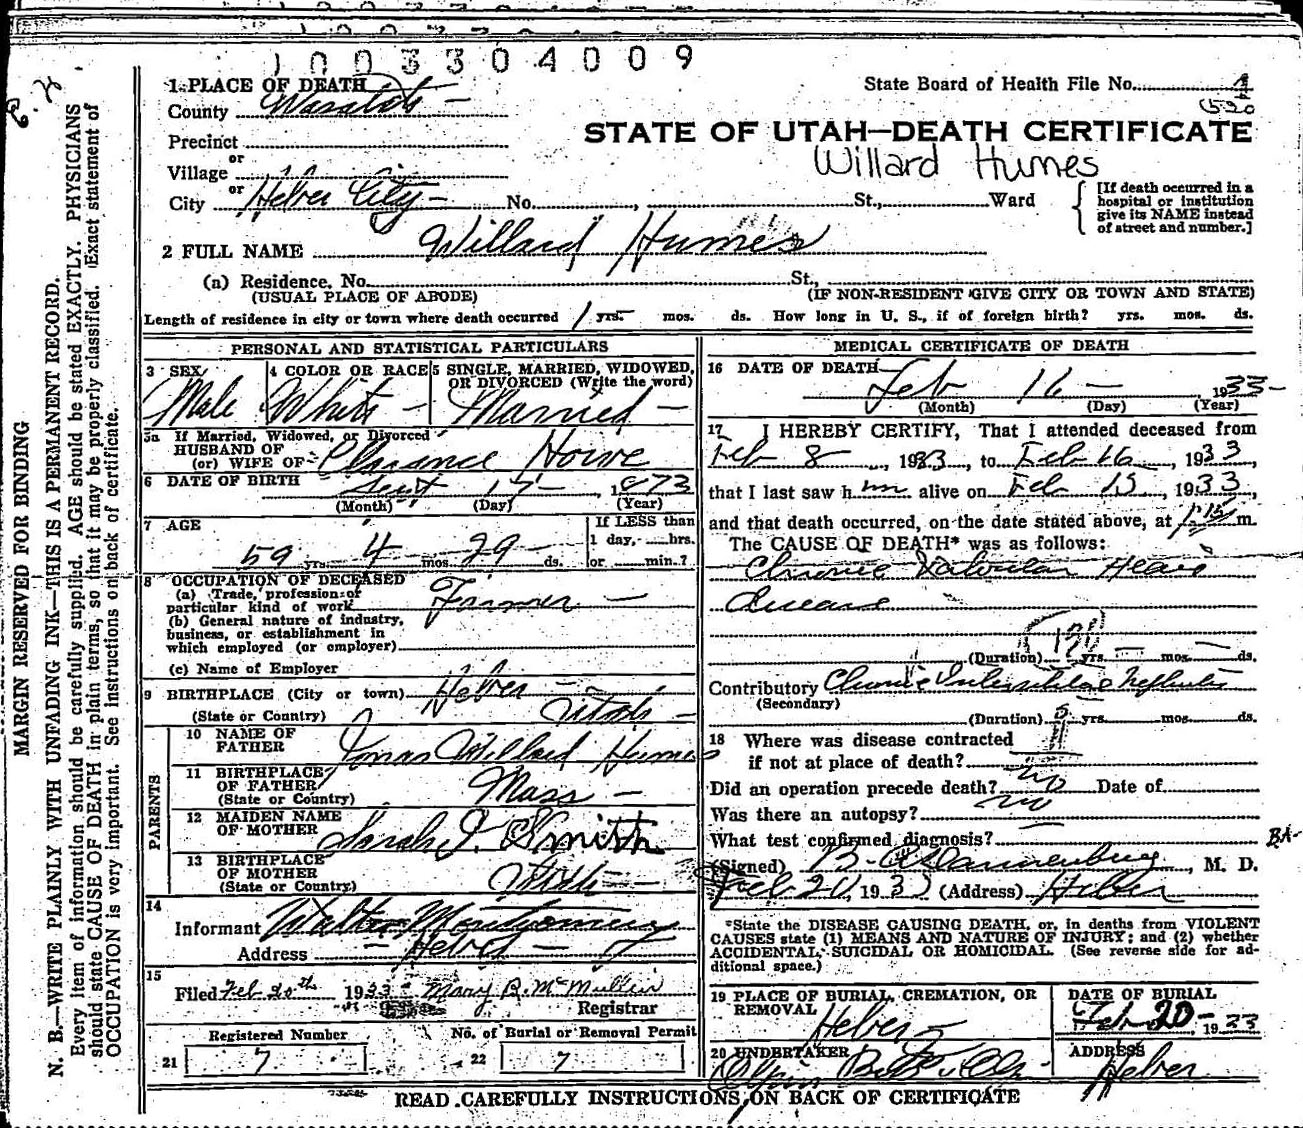 1003304009
1 PLACE OF DEATH
State Board of Health File No. 4
County Wasatch
526
STATE OF UTAH—DEATH CERTIFICATE
Precinct
Willard Humes
or
Village
or
City Heber City No. , St., Ward
[If death occurred in a
hospital or institution
give its NAME instead
of street and number.]
2 FULL NAME Willard Humes
(a) Residence. No. St.,
(USUAL PLACE OF ABODE) (IF NON-RESIDENT GIVE CITY OR TOWN AND STATE)
Length of residence in city or town where death occurred 1 yrs. mos. ds. How long in U. S., if of foreign birth? yrs. mos. ds.
PERSONAL AND STATISTICAL PARTICULARS
3 SEX 4 COLOR OR RACE 5 SINGLE, MARRIED, WIDOWED,
OR DIVORCED (Write the word)
Male White Married
5a If Married, Widowed, or Divorced
HUSBAND OF
(or) WIFE OF Howe
6 DATE OF BIRTH Sept 17 1873
(Month) (Day) (Year)
7 AGE
If LESS than
1 day, hrs.
59 yrs. 4 mos. 29 ds. or min.?
8 OCCUPATION OF DECEASED
(a) Trade, profession of
particular kind of work Farmer
(b) General nature of industry,
business, or establishment in
which employed (or employer)
(c) Name of Employer
9 BIRTHPLACE (City or town) Heber
(State or Country) Utah
PARENTS
10 NAME OF
FATHER Willard Humes
11 BIRTHPLACE
OF FATHER Mass
(State or Country)
12 MAIDEN NAME
OF MOTHER Sarah J. Smith
13 BIRTHPLACE
OF MOTHER Utah
(State or Country)
14
Informant Walter Montgomery
Address Heber
15
Filed Feb 20th 1933 Mary B. McMullin
Registrar
Registered Number No. of Burial or Removal Permit
21 7 22 7
MEDICAL CERTIFICATE OF DEATH
16 DATE OF DEATH
Feb 16 1933
(Month) (Day) (Year)
17 I HEREBY CERTIFY, That I attended deceased from
Feb 8, 1933, to Feb 16, 1933,
that I last saw him alive on Feb 15, 1933,
and that death occurred, on the date stated above, at 1:15 m.
The CAUSE OF DEATH* was as follows:
Chronic Valvular Heart
Disease
(Duration) yrs. mos. ds.
Contributory Chronic Interstitial Nephritis
(Secondary)
(Duration) 5 yrs. mos. ds.
18 Where was disease contracted
if not at place of death?
Did an operation precede death? no Date of
Was there an autopsy? no
What test confirmed diagnosis?
BA-
(Signed) Dannenberg, M. D.
Feb 20, 193 (Address) Heber
*State the DISEASE CAUSING DEATH, or, in deaths from VIOLENT
CAUSES state (1) MEANS AND NATURE OF INJURY; and (2) whether
ACCIDENTAL, SUICIDAL OR HOMICIDAL. (See reverse side for ad-
ditional space.)
19 PLACE OF BURIAL, CREMATION, OR
REMOVAL
Heber
DATE OF BURIAL
Feb 20 1933
20 UNDERTAKER
ADDRESS
Heber
READ CAREFULLY INSTRUCTIONS ON BACK OF CERTIFICATE
MARGIN RESERVED FOR BINDING
N. B.—WRITE PLAINLY WITH UNFADING INK—THIS IS A PERMANENT RECORD.
Every item of information should be carefully supplied. AGE should be stated EXACTLY. PHYSICIANS
should state CAUSE OF DEATH in plain terms, so that it may be properly classified. Exact statement of
OCCUPATION is very important. See instructions on back of certificate.